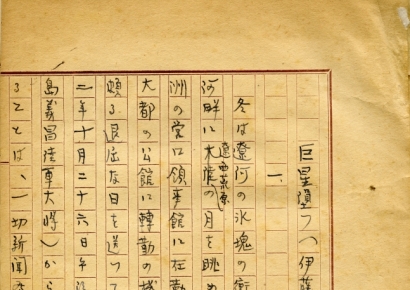 巨星墜つ(伊藤
一、
冬は遼河の氷塊の衝
河畔に木
遼西平原
の月を眺め
洲の営口領事館に在勤
大都の公館に轉勤の
頗る退屈な日を送つて
二年十月二十六日午
島義昌陸軍大將)から
ることは、一切新聞